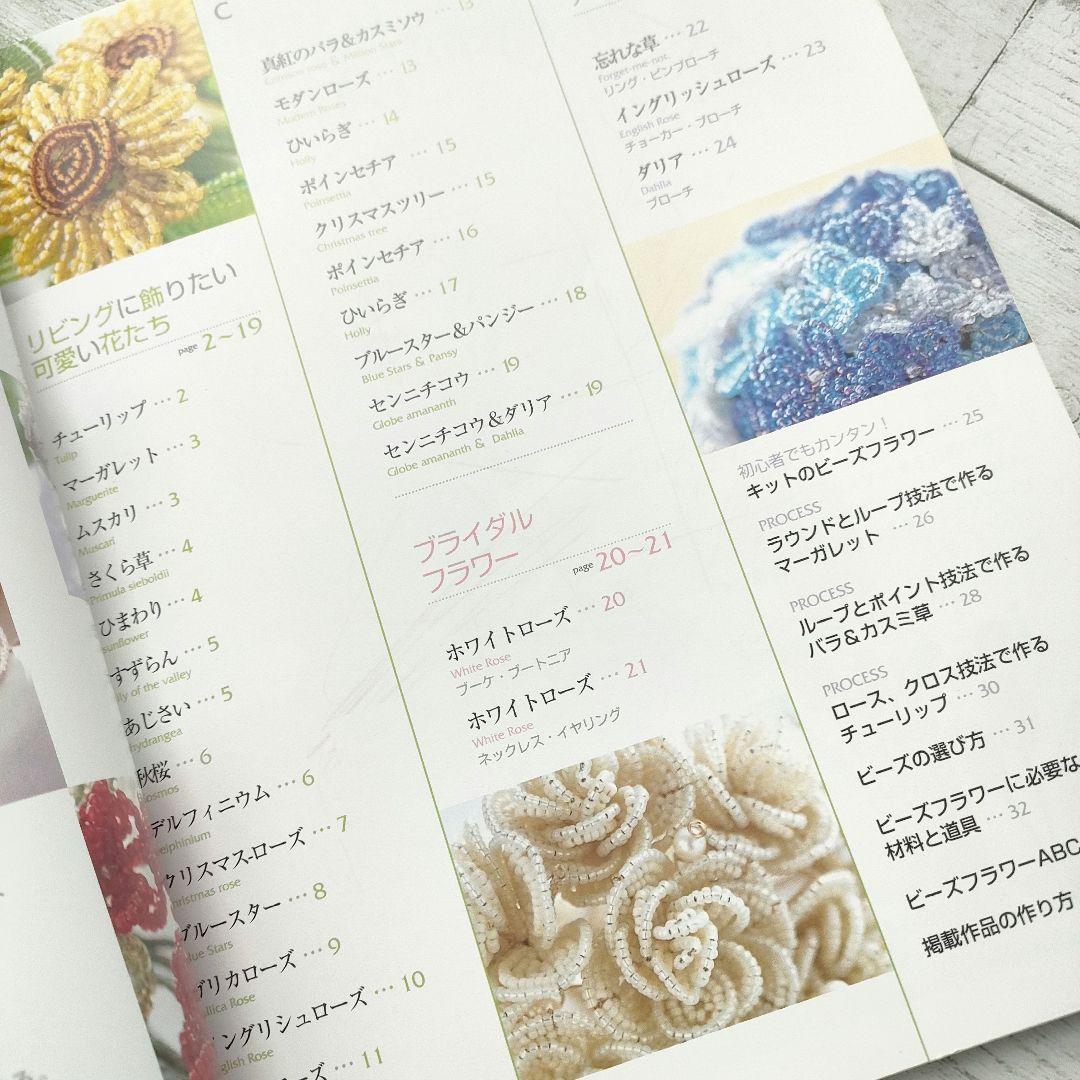 リビングに飾りたい
可愛い花たち
page 2~19
チューリップ … 2
Tulip
マーガレット … 3
Marguerite
ムスカリ … 3
Muscari
さくら草 … 4
Primula sieboldii
ひまわり … 4
sunflower
すずらん … 5
lly of the valley
あじさい … 5
hydrangea
秋桜 … 6
cosmos
デルフィニウム … 6
elphinium
クリスマスローズ … 7
hristmas rose
ブルースター … 8
lue Stars
ガリカローズ … 9
llica Rose
ングリシュローズ … 10
glish Rose
ーズ … 11
C
真紅のバラ&カスミソウ … 13
モダンローズ … 13
Modern Roses
ひいらぎ … 14
Holly
ポインセチア … 15
Poinsettia
クリスマスツリー … 15
Christmas tree
ポインセチア … 16
Poinsettia
ひいらぎ … 17
Holly
ブルースター&パンジー … 18
Blue Stars & Pansy
センニチコウ … 19
Globe amananth
センニチコウ&ダリア … 19
Globe amananth & Dahlia
ブライダル
フラワー
page 20~21
ホワイトローズ … 20
White Rose
ブーケ・ブートニア
ホワイトローズ … 21
White Rose
ネックレス・イヤリング
忘れな草 … 22
Forget-me-not
リング・ピンブローチ
イングリッシュローズ … 23
English Rose
チョーカー・ブローチ
ダリア … 24
Dahlia
ブローチ
初心者でもカンタン!
キットのビーズフラワー … 25
PROCESS
ラウンドとループ技法で作る
マーガレット … 26
PROCESS
ループとポイント技法で作る
バラ&カスミ草 … 28
PROCESS
ロース、クロス技法で作る
チューリップ … 30
ビーズの選び方 … 31
ビーズフラワーに必要な
材料と道具 … 32
ビーズフラワーABC
掲載作品の作り方